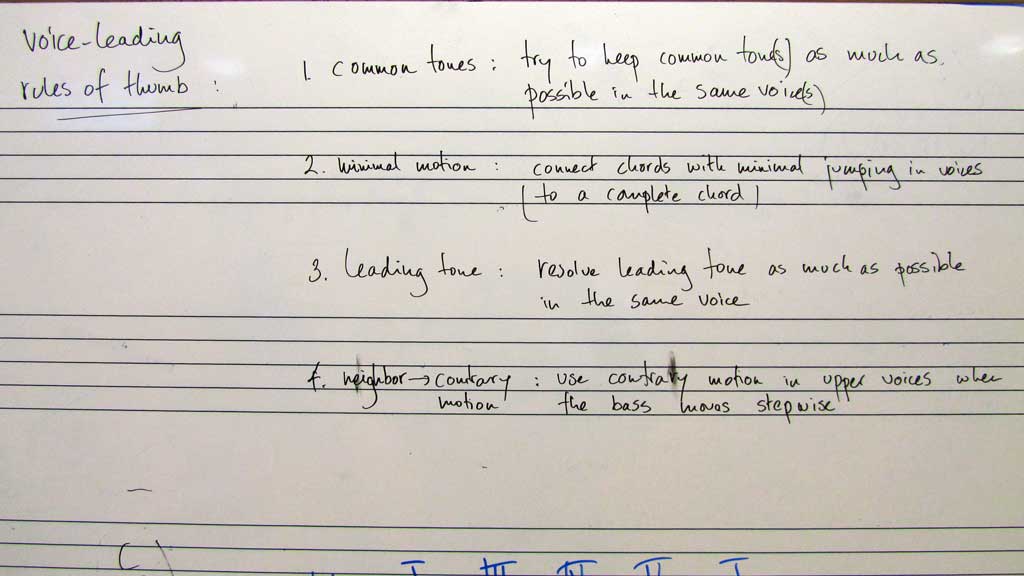 Voice-leading
rules of thumb :
1. common tones : try to keep common tone(s) as much as
possible in the same voice(s)
2. minimal motion : connect chords with minimal jumping in voices
(to a complete chord)
3. leading tone : resolve leading tone as much as possible
in the same voice
4. neighbor → contrary : use contrary motion in upper voices when
motion the bass moves stepwise
I III IV II I